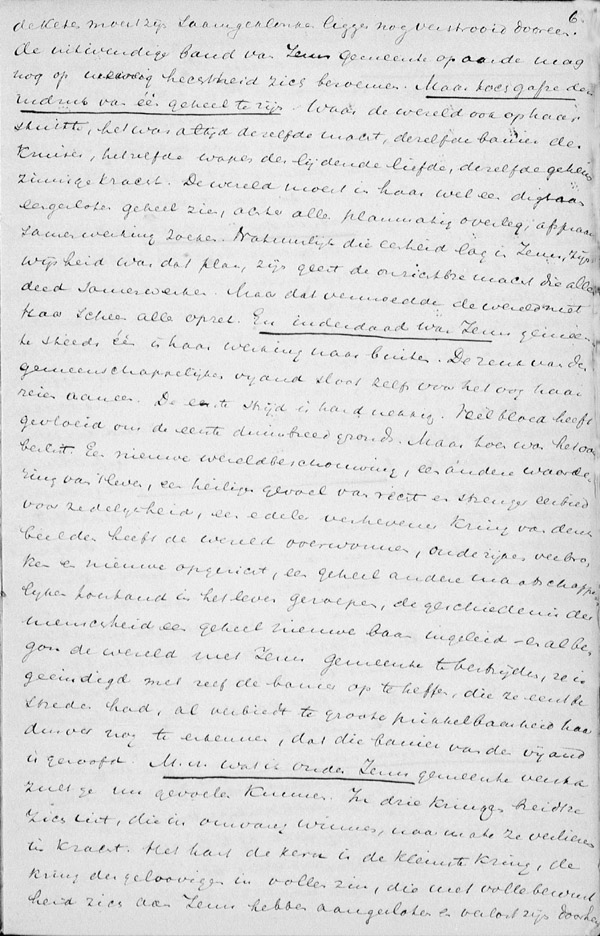 6.
deketen moest zijn saamgeklonken liggen nog verstrooid dooreen.
De uitwendige band van Jezus gemeente op aarde mag
nog op weinig hechtheid zich beroemen. Maar toch gaf ze den
indruk van één geheel te zijn. Waar de wereld ook op haar
stuitte, het was altijd dezelfde macht, dezelfde banier des
kruises, hetzelfde wapen der lijdende liefde, dezelfde geheim
zinnige kracht. De wereld moest in haar wel een dicht aan
eengesloten geheel zien, achter alle planmatig overleg, afspraak
samenwerking zoeken. Natuurlijk die eenheid lag in Jezus, zijn
wijsheid was dat plan, zijn geest de onzichtbre macht die allen
deed samenwerken. Maar dat vermoedde de wereld niet
Haar scheen alles opzet. En inderdaad was Jezus gemeen
te steeds één in haar werking naar buiten. De zenk van den
gemeenschappelijken vyand sloot zelfs voor het oog haar
reien aaneen. De eerste strijd is hardnekkig. Veel bloed heeft
gevloeid om de eerste duimbreed gronds. Maar toen was het ook
beslist. Een nieuwe wereldbeschouwing, een andere waarde
ring van 't leven, een heilig gevoel van recht en strenge eerbied
voor zedelijkheid, een edele verhevene kring van denk
beelden heeft de wereld overwonnen, oude zijn verbro
ken en nieuwe opgericht, een geheel andere maatschappe
lyken toestand in het leven geroepen, de geschiedenis der
menschheid een geheel nieuwe baan ingeleid - en al be
gon de wereld met Jezus gemeente te bestrijden, ze is
geëindigd met zelf de banier op te heffen, die ze eerst be
streden had, al verbiedt te groote prikkelbaarheid haar
dusver nog te erkennen, dat die banier van den vyand
is geroofd. M.H. wat ik onder Jezus gemeente versta
zult ge nu gevoelen kunnen. In drie kringen breidt ze
zich uit, die in omvang winnen, naarmate ze verliezen
in kracht. Het hart de kern is de kleinste kring, de
kring der geloovigen in vollen zin, die met volle bewust
heid zich aan Jezus hebben aangesloten en verlost zijn door hem